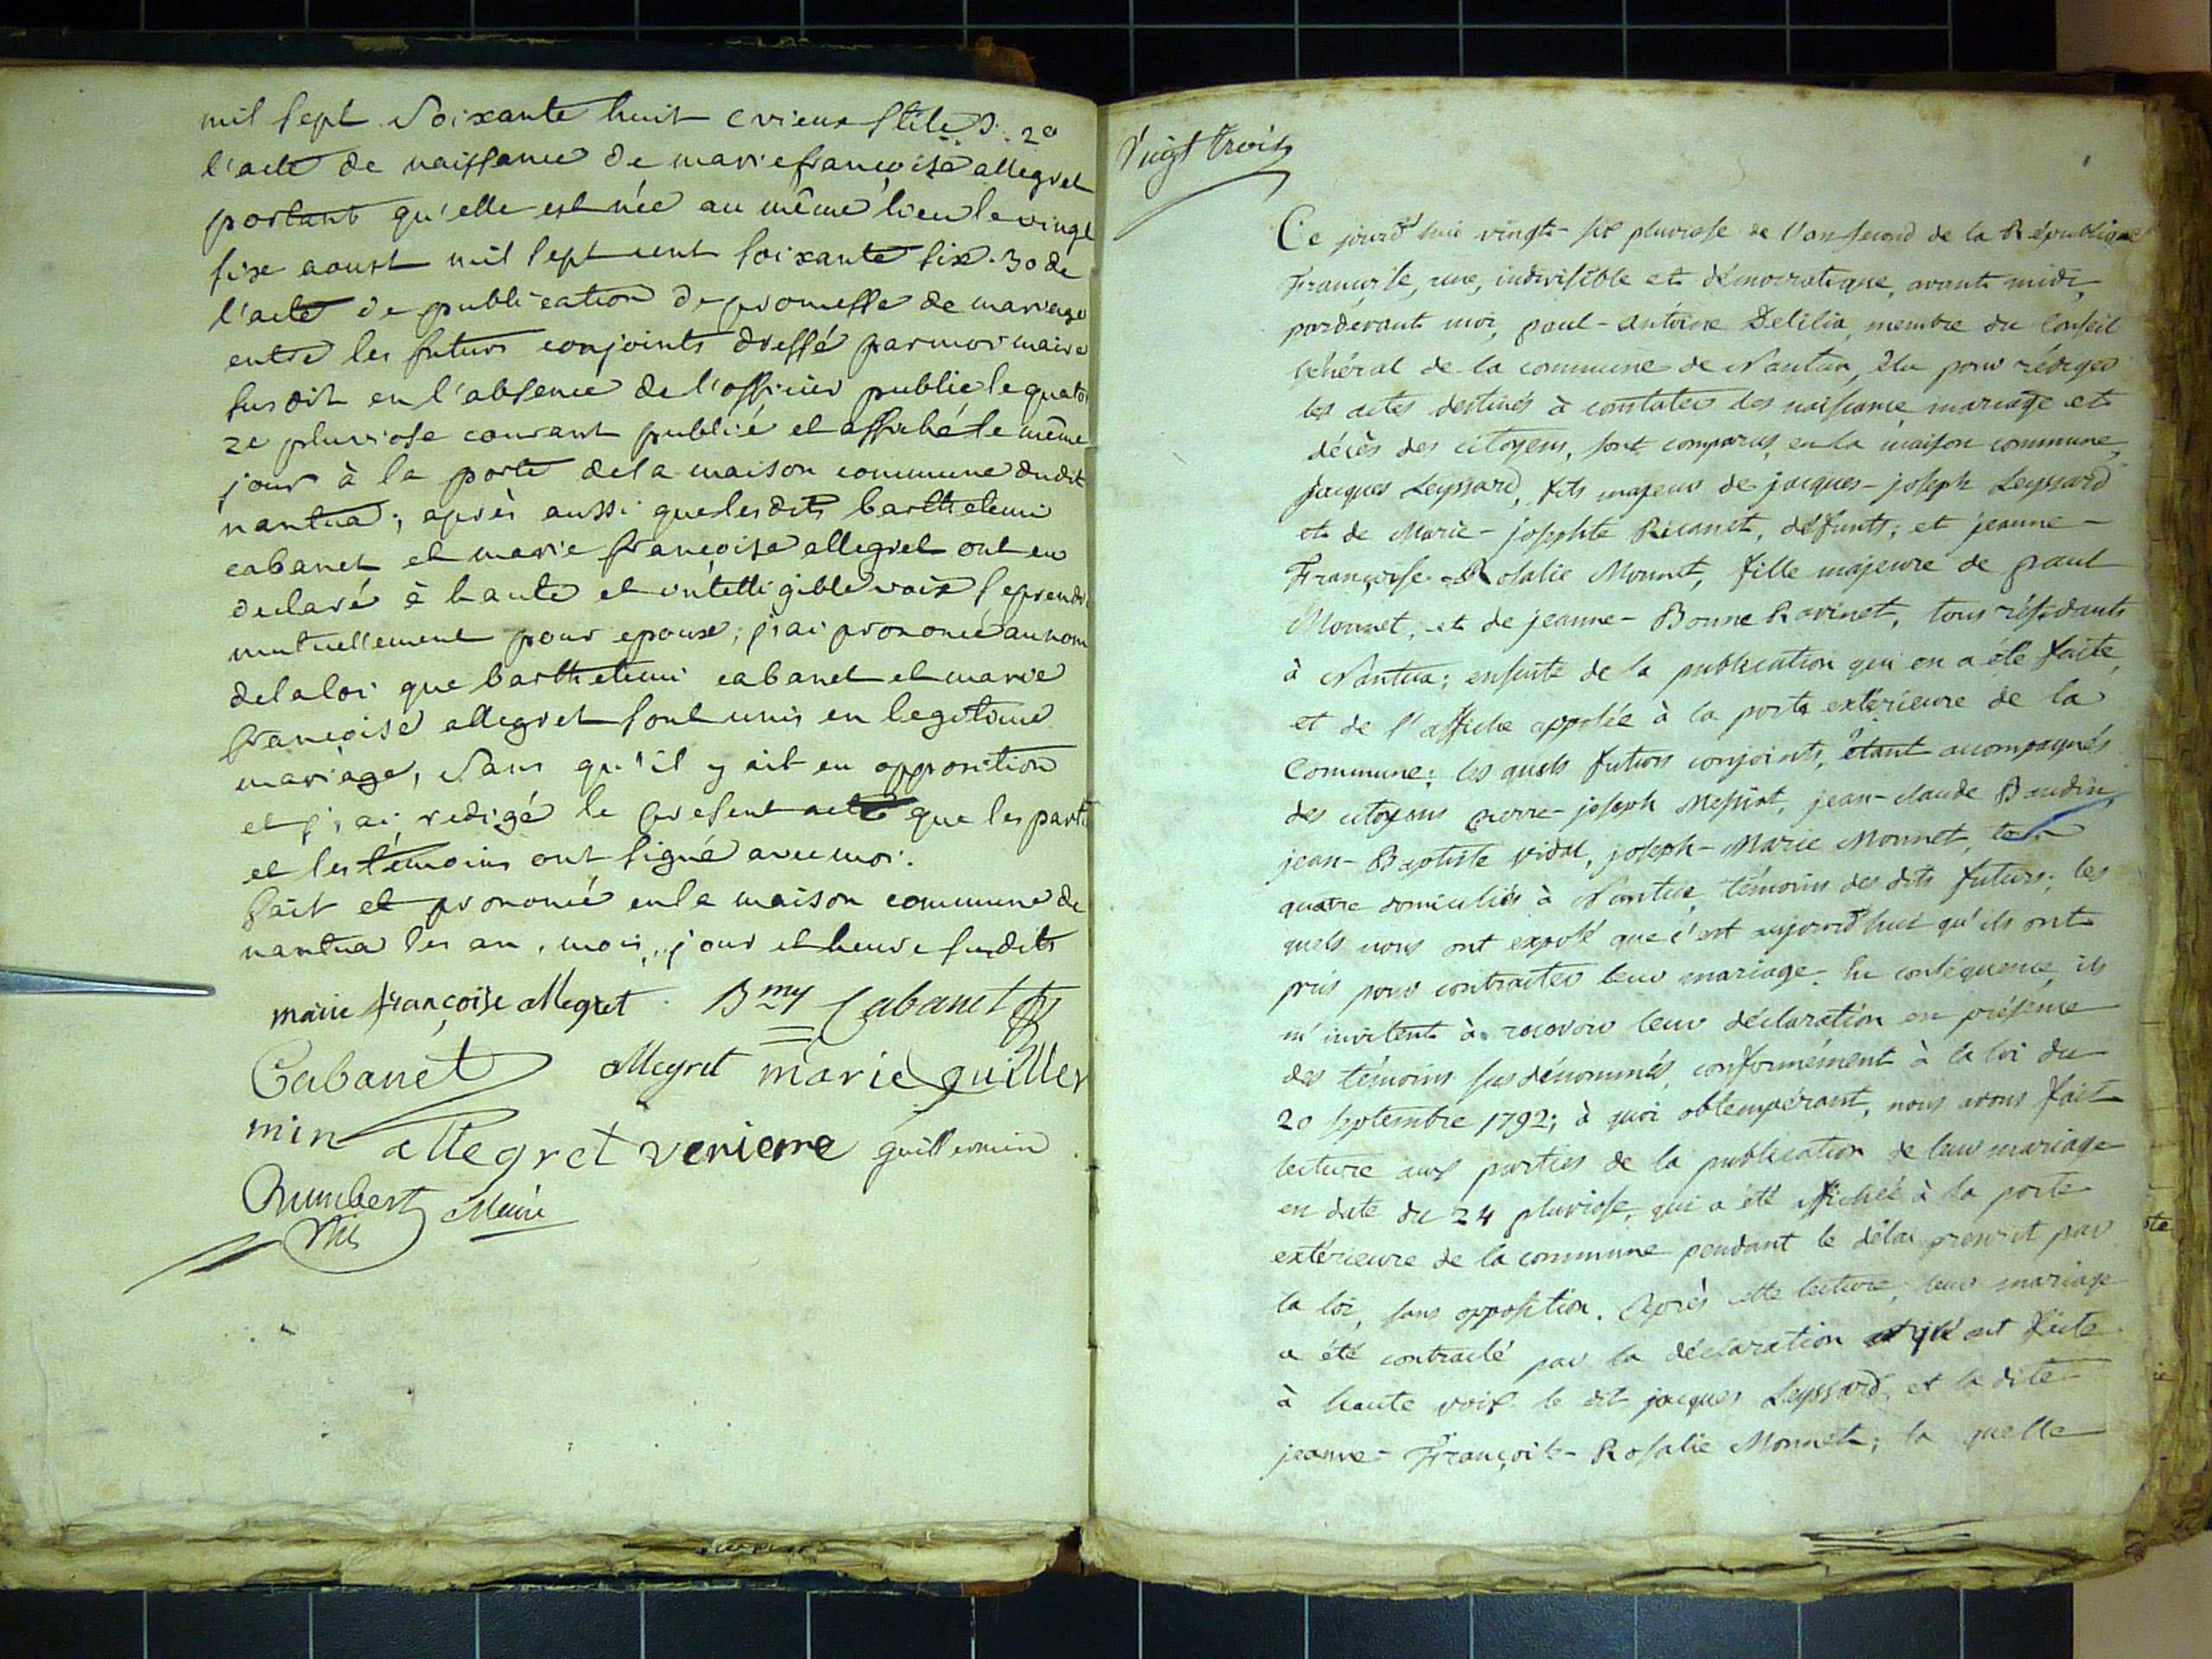 mil sept Soixante huit (vieux stile). 2o
l'acte de naissance de marie françoise allegret
portant qu'elle est née au même lieu le vingt
sixe aoust mil sept cent soixante six. 3o de
l'acte de publication de promesse de mariage
entre les futurs conjoints dressé par moi maire
sus dit en l'absence de l'officier public le quator
ze pluviose courant publié et affiché le même
jour à la porte de la maison commune dudit
nantua; après aussi que lesdits barthelemi
cabanet et marie françoise allegret ont eu
declaré à haute et intelligible voix se prendre
mutuellement pour epoux; j'ai prononcé au nom
de la loi que barthelemi cabanet et marie
françoise allegret sont unis en legitime
mariage, sans qu'il y ait eu opposition
et j'ai redigé le present acte que les parties
et les témoins ont signé avec moi.
fait et prononcé en la maison commune de
nantua les an, mois, jour et heure susdits
marie françoise allegret Bmy Cabanet fs
Cabanet allegret marie guiller
min allegret verierre guillermin
humbert Maire
fils
Vingt trois
Ce jourd'hui vingt-six pluviose de l'an second de la République
Française, une, indivisible et démocratique, avant midi,
pardevant moi, paul-antoine Delilia, membre du Conseil
général de la commune de Nantua, élu pour rédiger
les actes destinés à constater les naissance mariage et
décès des citoyens, sont comparus, en la maison commune,
jacques Leyssard, fils majeur de jacques-joseph Leyssard
et de Marie-josephte Ricanet, défunts; et jeanne-
Françoise-Rosalie Monnet, fille majeure de paul
Monnet, et de jeanne-Bonne Ravinet, tous résidants
à Nantua; ensuite de la publication qui en a été faite,
et de l'affiche apposée à la porte extérieure de la
Commune; les quels futurs conjoints, étant accompagnés
des citoyens pierre-joseph Messiat, jean-claude Baudin,
jean-Baptiste vidal, joseph-Marie Monnet, tous
quatre domiciliés à Nantua, témoins des dits futurs; les
quels nous ont exposé que c'est aujourd'hui qu'ils ont
pris pour contracter leur mariage. En conséquence, ils
m'invitent à recevoir leur déclaration en présence
des témoins sus dénommés, conformément à la loi du
20 septembre 1792; à quoi obtempérant, nous avons fait
lecture aux parties de la publication de leur mariage
en date du 24 pluviose, qui a été affichée à la porte
extérieure de la commune pendant le délai prescrit par
la loi, sans opposition. Après cette lecture, leur mariage
a été contracté par la déclaration qu'en ont faite
à haute voix le dit jacques Leyssard, et la dite
jeanne-Françoise-Rosalie Monnet; la quelle